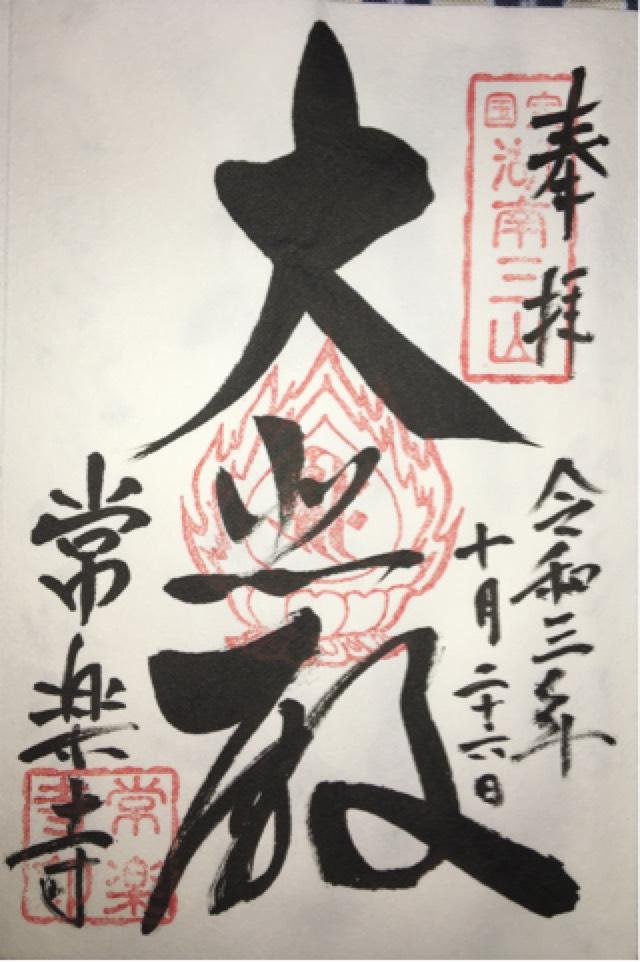 奉拝
国宝
湖南三山
令和三年
十月二十六日
大悲殿
常楽寺
常楽
寺印